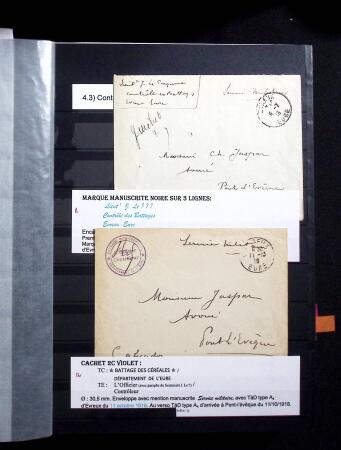 4.3) Cont
contrôle des Battages
Evreux Eure
Service militaire
EURE
Monsieur Ch. Jaspar
Avoué
Pont d'Evêque
MARQUE MANUSCRITE NOIRE SUR 3 LIGNES:
Lieut' J. Le ???
Contrôle des Battages
Evreux Eure
Service militaire
11-10
18
EURE
Monsieur Jaspar
Avoué
Pont l'Evêque
Calvados
CACHET 2C VIOLET :
TC : ★ BATTAGE DES CÉRÉALES ★ /
DÉPARTEMENT DE L'EURE
TE : L'Officier (avec paraphe du lieutenant J. Le ?) /
Contrôleur
Ø : 30,5 mm. Enveloppe avec mention manuscrite Service militaire, avec TàD type A₄
d'Evreux du 11 octobre 1918. Au verso TàD type A₄ d'arrivée à Pont-l'évêque du 11/10/1918.